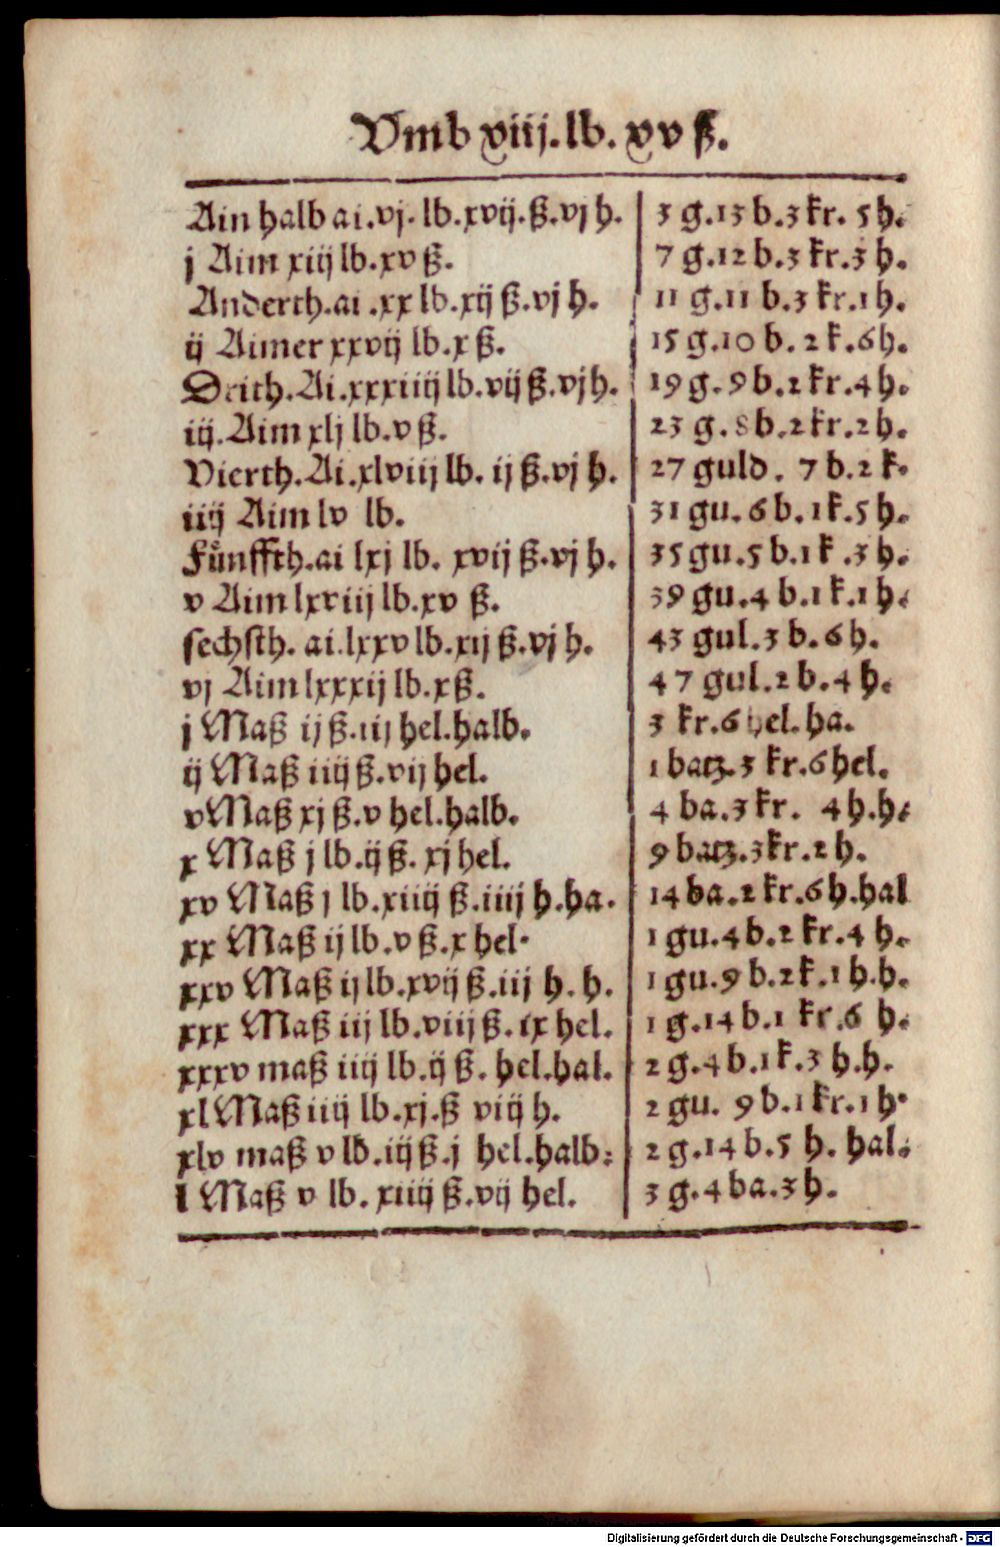 Vmb xiij.lb. xv ß.
Ain halb ai.vj. lb.xvij.ß.vj h. 3 g.13 b.3 kr. 5 h.
j Aim xiij lb.xv ß. 7 g.12 b.3 kr.3 h.
Anderth.ai .xx lb.xij ß.vj h. 11 g.11 b.3 kr.1 h.
ij Aimer xxvij lb.x ß. 15 g.10 b. 2 k.6 h.
Drith.Ai.xxxiiij lb.vij ß.vj h. 19 g.9 b.2 kr.4 h.
iij.Aim xlj lb.v ß. 23 g.8 b.2 kr.2 h.
Vierth.Ai.xlviij lb. ij ß.vj h. 27 guld. 7 b.2 k.
iiij Aim lv lb. 31 gu.6 b.1 k.5 h.
Fünffth.ai lxj lb. xvij ß.vj h. 35 gu.5 b.1 k .3 h.
v Aim lxviij lb.xv ß. 39 gu.4 b.1 k.1 h.
sechsth. ai.lxxv lb.xij ß.vj h. 43 gul.3 b.6 h.
vj Aim lxxxij lb.x ß. 47 gul.2 b.4 h.
j Maß ij ß.iij hel.halb. 3 kr.6 hel.ha.
ij Maß iiij ß.vij hel. 1 batz.3 kr.6 hel.
v Maß xj ß.v hel.halb. 4 ba.3 kr. 4 h.h.
x Maß j lb.ij ß. xj hel. 9 batz.3 kr.2 h.
xv Maß j lb.xiiij ß.iiij h.ha. 14 ba.2 kr.6 h.hal
xx Maß ij lb.v ß.x hel. 1 gu.4 b.2 kr.4 h.
xxv Maß ij lb.xvij ß.iij h. h. 1 gu.9 b.2 k.1 h.h.
xxx Maß iij lb.viij ß.ix hel. 1 g.14 b.1 kr.6 h.
xxxv maß iiij lb.ij ß. hel.hal. 2 g.4 b.1 k.3 h.h.
xl Maß iiij lb.xj.ß viij h. 2 gu. 9 b.1 kr.1 h.
xlv maß v lb.iiij ß.j hel.halb. 2 g.14 b.5 h. hal.
l Maß v lb. xiiij ß.vij hel. 3 g.4 ba.3 h.
Digitalisierung gefördert durch die Deutsche Forschungsgemeinschaft - DFG